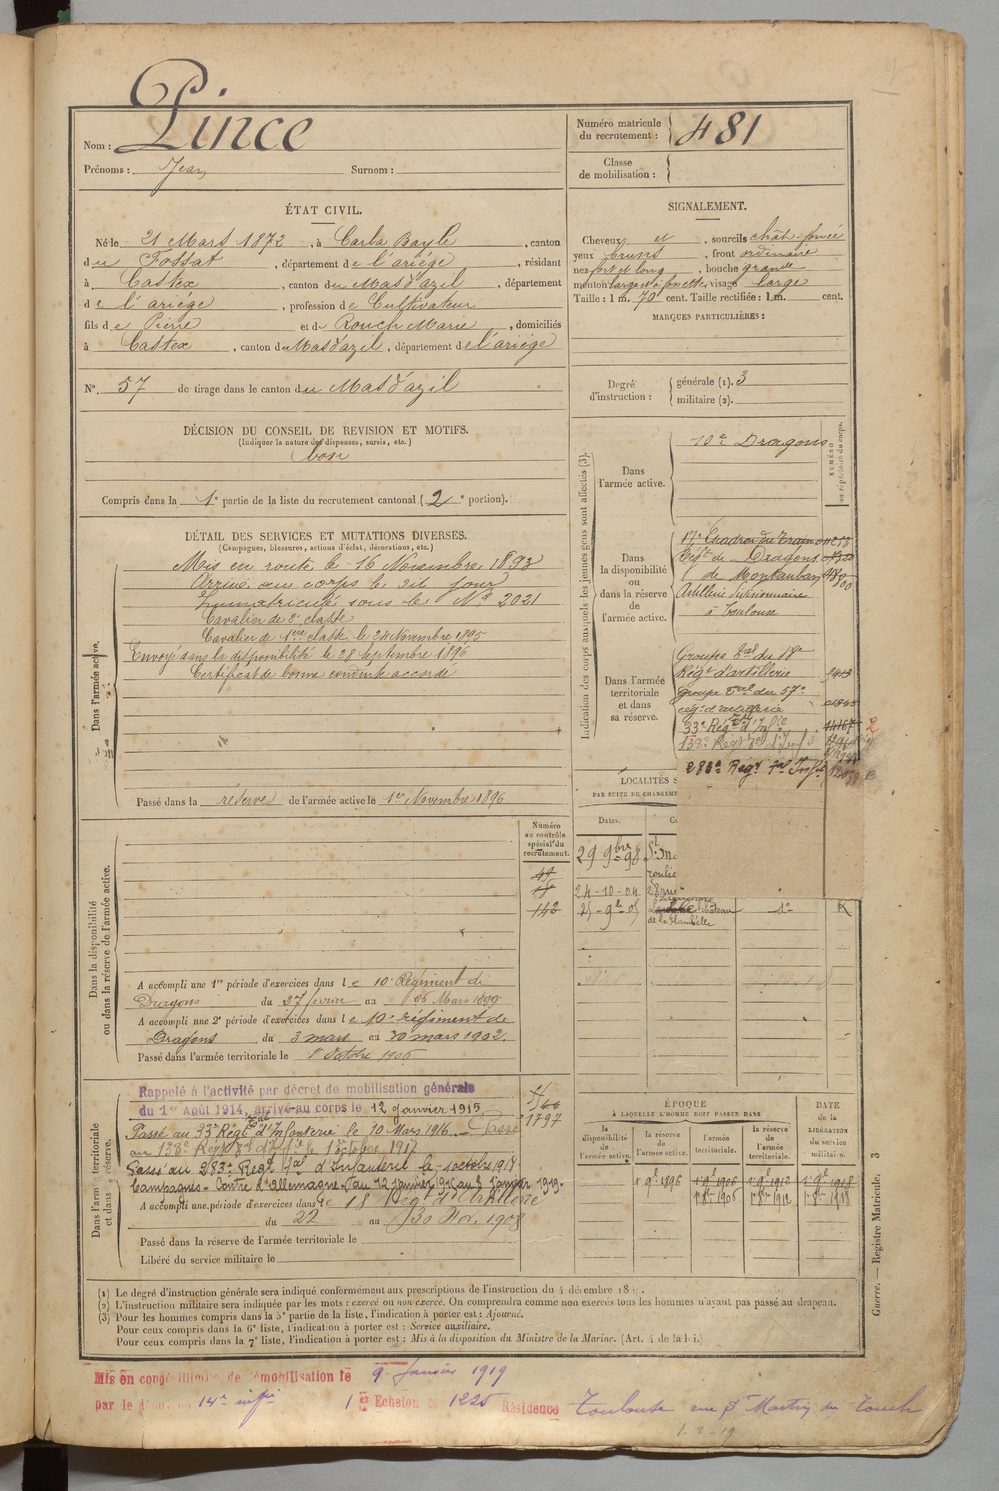 Nom : Pince
Prénoms : Jean Surnom :
Numéro matricule du recrutement : 481
Classe de mobilisation :
ÉTAT CIVIL.
Né le 21 Mars 1872, à Carla Bayle, canton
du Fossat, département de l'ariège, résidant
à Castex, canton du Mas d'azil, département
de l'ariège, profession de Cultivateur
fils de Pierre et de Rouch Marie, domiciliés
à Castex, canton du Mas d'azil, département de l'ariège
N° 57 de tirage dans le canton du Mas d'azil
DÉCISION DU CONSEIL DE REVISION ET MOTIFS.
(Indiquer la nature des dispenses, sursis, etc.)
bon
Compris dans la 1e partie de la liste du recrutement cantonal (2e portion).
SIGNALEMENT.
Cheveux et, sourcils chât. foncé
yeux bruns, front ordinaire
nez fort et long, bouche grande
menton large et à fossette, visage large
Taille : 1 m. 70 cent. Taille rectifiée : 1 m. cent.
MARQUES PARTICULIÈRES :
Degré d'instruction : générale (1). 3
militaire (2).
DÉTAIL DES SERVICES ET MUTATIONS DIVERSES.
(Campagnes, blessures, actions d'éclat, décorations, etc.)
Dans l'armée active.
Mis en route le 16 Novembre 1893
Arrivé au corps le dit jour
Immatriculé sous le N° 2021
Cavalier de 2e classe
Cavalier de 1ère classe le 24 Novembre 1895
Envoyé dans la disponibilité le 28 Septembre 1896
Certificat de bonne conduite accordé
Passé dans la réserve de l'armée active le 1er Novembre 1896
Indication des corps auxquels les jeunes gens sont affectés (3).
NUMÉRO au répertoire du corps.
Dans l'armée active.
10e Dragons
Dans la disponibilité ou dans la réserve de l'armée active.
17e Escadron du Train
Régt de Dragons
de Montauban
Artillerie divisionnaire
à Toulouse
Dans l'armée territoriale et dans sa réserve.
Groupe Tal du 18e
Régt d'artillerie
Groupe Tal du 57e
rég. d'artillerie
33e Régt Tal d'Inf ie
138e Régt Tal d'Inf ie
283e Regt Tal Inf ie
LOCALITÉS S
PAR SUITE DE CHANGEME
Dates.
29 9bre 98
24-10-04
25-9-05
château
de la Flambelle
1e
R
Dans la disponibilité ou dans la réserve de l'armée active.
Numéro au contrôle spécial du recrutement.
142
A accompli une 1re période d'exercices dans le 10e Régiment de
Dragons du 27 février au 26 Mars 1899
A accompli une 2e période d'exercices dans le 10e régiment de
Dragons du 3 mars au 30 mars 1902.
Passé dans l'armée territoriale le 1er Octobre 1906
Dans l'armée territoriale et dans sa réserve.
Rappelé à l'activité par décret de mobilisation générale
du 1er Août 1914, arrivé au corps le 12 Janvier 1915
1797
Passé au 33e Régt Tal d'Infanterie le 10 Mars 1916. Passé
au 138e Régt Tal d'Inf ie le 1er octobre 1917
Passé au 283e Regt Tal d'Infanterie le 1 octobre 1917
Campagnes - Contre l'Allemagne du 12 janvier 1915 au 8 Janvier 1919.
A accompli une période d'exercices dans le 18 Régt d'Artillerie
du 22 au 30 Nov. 1908
Passé dans la réserve de l'armée territoriale le
Libéré du service militaire le
ÉPOQUE
À LAQUELLE L'HOMME DOIT PASSER DANS
la disponibilité de l'armée active.
la réserve de l'armée active.
l'armée territoriale.
la réserve de l'armée territoriale.
DATE de la LIBÉRATION du service militaire.
1er 9e 1896
1er 9e 1906
1er 9e 1912
1er 9e 1918
1er 8bre 1906
1er 8bre 1912
1er 8bre 1918
(1) Le degré d'instruction générale sera indiqué conformément aux prescriptions de l'instruction du 4 décembre 18
(2) L'instruction militaire sera indiquée par les mots : exercé ou non exercé. On comprendra comme non exercés tous les hommes n'ayant pas passé au drapeau.
(3) Pour les hommes compris dans la 5e partie de la liste, l'indication à porter est : Ajourné.
Pour ceux compris dans la 6e liste, l'indication à porter est : Service auxiliaire.
Pour ceux compris dans la 7e liste, l'indication à porter est : Mis à la disposition du Ministre de la Marine. (Art. 4 de la loi.)
Guerre. — Registre Matricule. 3
Mis en congé illimité de démobilisation le 9 Janvier 1919
par le 14e inf ie 1er Echelon N° 1225 Résidence Toulouse rue St Martin du Touch
1-2-19